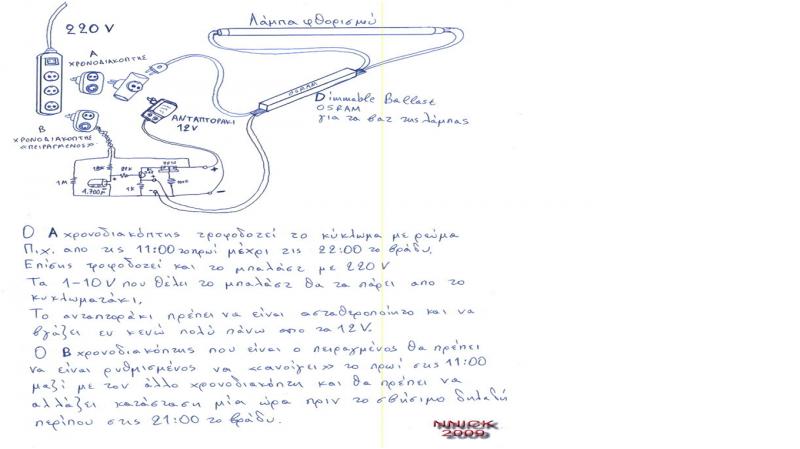 220 V
Λάμπα φθορισμού
A
ΧΡΟΝΟΔΙΑΚΟΠΤΗΣ
OSRAM
Dimmable Ballast
OSRAM
για τα βατ της λάμπας
ΑΝΤΑΠΤΟΡΑΚΙ
12V
B
ΧΡΟΝΟΔΙΑΚΟΠΤΗΣ
«ΠΕΙΡΑΓΜΕΝΟΣ»
1M
4.700μ
1K
+
-
Ο Α χρονοδιακόπτης τροφοδοτεί το κύκλωμα με ρεύμα
Π.χ. απο τις 11:00 το πρωί μέχρι τις 22:00 το βράδυ.
Επίσης τροφοδοτεί και το μπαλάστ με 220 V
Τα 1-10V που θέλει το μπαλάστ θα τα πάρει απο το
κυκλωματάκι.
Το ανταπτοράκι πρέπει να είναι ασταθεροποίητο και να
βγάζει εν κενώ πολύ πάνω απο τα 12V.
Ο Β χρονοδιακόπτης που είναι ο πειραγμένος θα πρέπει
να είναι ρυθμισμένος να «ανοίγει» το πρωί στις 11:00
μαζί με τον άλλο χρονοδιακόπτη και θα πρέπει να
αλλάζει κατάσταση μία ώρα πριν το σβήσιμο δηλαδή
περίπου στις 21:00 το βράδυ.
NNICK
2009